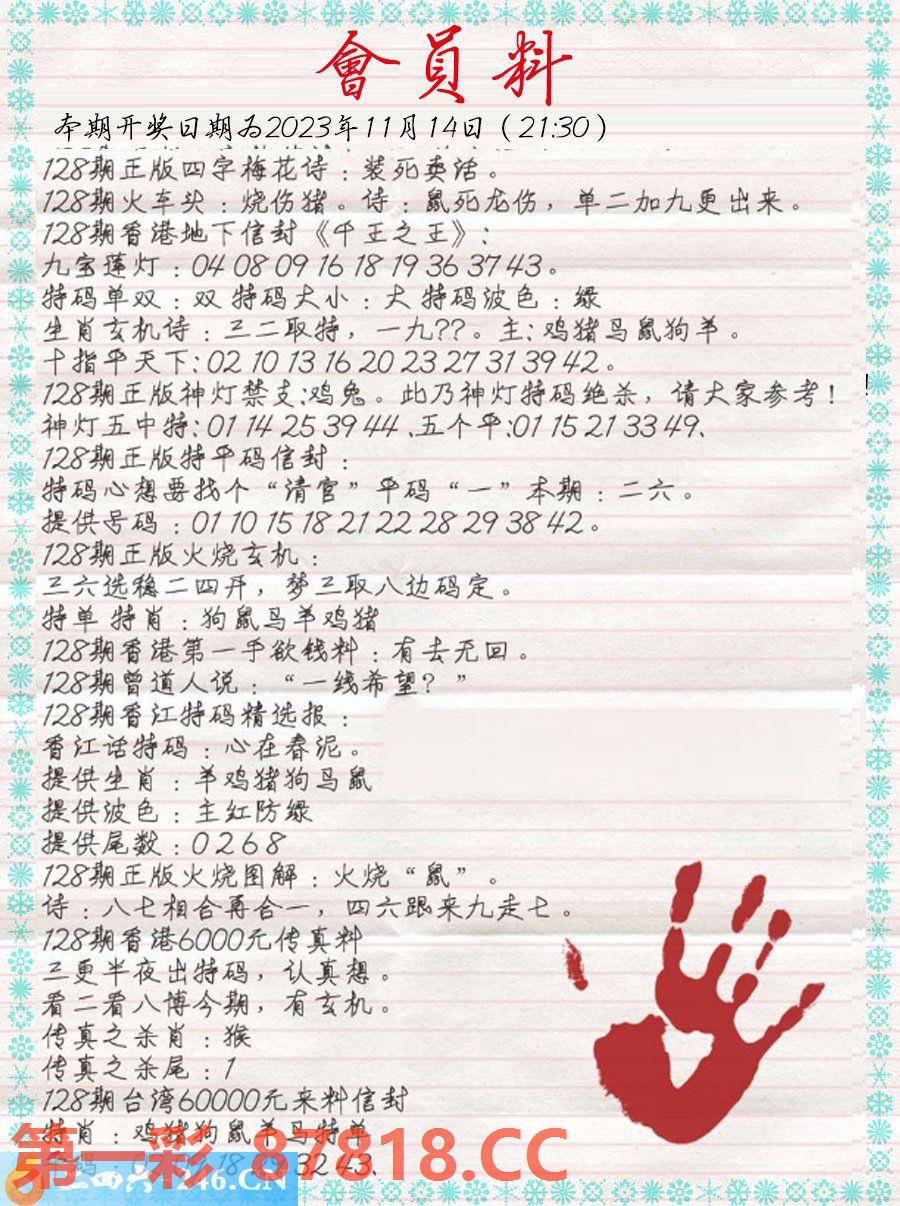 會員料
本期开奖日期为2023年11月14日（21:30）
128期正版四字梅花诗：装死卖活。
128期火车头：烧伤猪。诗：鼠死龙伤，单二加九更出来。
128期香港地下信封《千王之王》：
九宝莲灯：04 08 09 16 18 19 36 37 43。
特码单双：双 特码大小：大 特码波色：绿
生肖玄机诗：三二取特，一九??。主：鸡猪马鼠狗羊。
十指平天下：02 10 13 16 20 23 27 31 39 42。
128期正版神灯禁支:鸡兔。此乃神灯特码绝杀，请大家参考！
神灯五中特：01 14 25 39 44 、五个平:01 15 21 33 49、
128期正版特平码信封：
特码心想要找个“清官”平码“一”本期：二六。
提供号码：01 10 15 18 21 22 28 29 38 42。
128期正版火烧玄机：
三六选稳二四开，梦三取八边码定。
特单 特肖：狗鼠马羊鸡猪
128期香港第一手欲钱料：有去无回。
128期曾道人说：“一线希望？”
128期香江特码精选报：
香江话特码：心在春泥。
提供生肖：羊鸡猪狗马鼠
提供波色：主红防绿
提供尾数：0 2 6 8
128期正版火烧图解：火烧“鼠”。
诗：八七相合再合一，四六跟来九走七。
128期香港6000元传真料
三更半夜出特码，认真想。
看二看八博今期，有玄机。
传真之杀肖：猴
传真之杀尾：1
128期台湾60000元来料信封
特肖：鸡猪狗鼠羊马特单
18 32 43、
第一彩 87818.CC
二四六 246.CN